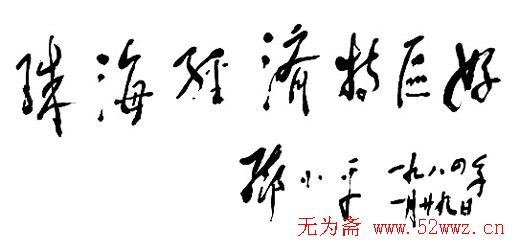 珠海經济特区好
邓小平 一九八四年
一月廿九日
无为斋 www.52wwz.cn